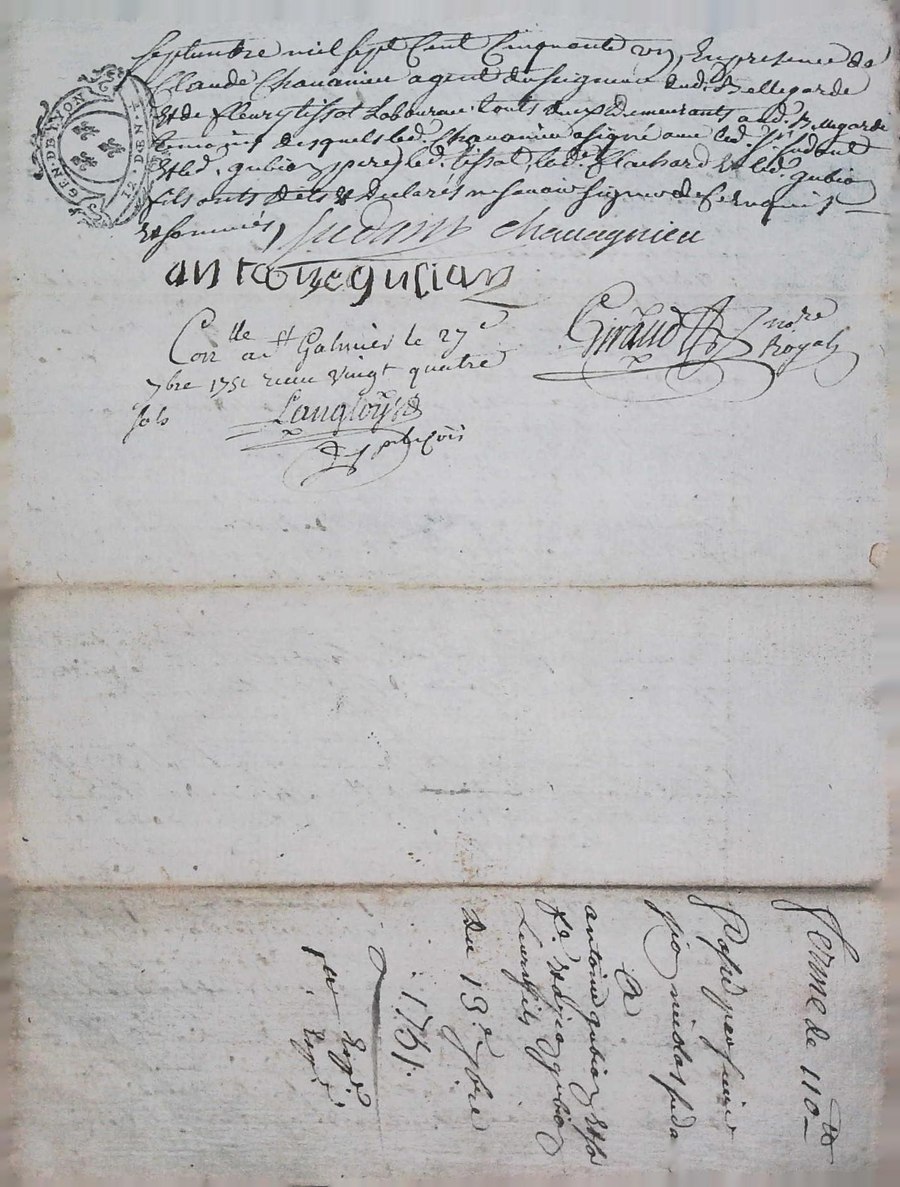 GEN. DE LYON
Septembre mil sept Cent Cinquante un, En presence de
Claude Chavanieu agent du seigneur dud. Bellegarde
Et de fleury tissot Laboureur touts deux demeurants aud. Bellegarde
temoins desquels led. Chavanieu a signé avec led. Sr. Judant
Et led. gubian pere, led. tissot, lad. flachard Et led. gubian
fils ont dits Et Declarés ne sçavoir signer de ce Enquis
Et sommés,
Judant Chavagnieu
antone gubian
Giraud
nore
Royal
Conlle a St Galmier le 27e
7bre 1751 receu vingt quatre
sols
Langloys
Ferme de 110 tt
Passé par sieur
A
antoine gubian Et sa
fe. Et gubian
Leur fils
Du 13e 7bre
1751.
1er Exp.